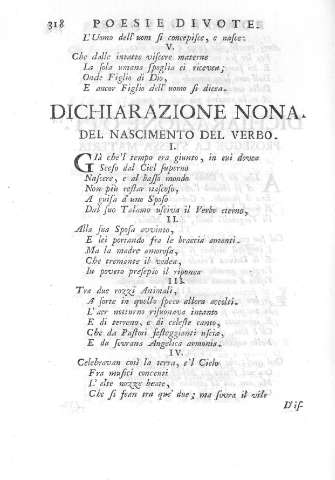 318 POESIE DIVOTE.
L'Uomo dell'uom si concepisce, e nasce.
V.
Che dalle intatte viscere materne
La sola umana spoglia ei ricevea;
Onde Figlio di Dio,
E ancor Figlio dell'uomo si dicea.
DICHIARAZIONE NONA.
DEL NASCIMENTO DEL VERBO.
I.
GIà che'l tempo era giunto, in cui dovea
Sceso dal Ciel superno
Nascere, e al basso mondo
Non più restar nascoso,
A guisa d'uno Sposo
Dal suo Talamo usciva il Verbo eterno,
II.
Alla sua Sposa avvinto,
E lei portando fra le braccia amanti.
Ma la madre amorosa,
Che tremante il vedea,
In povero presepio il riponea
III.
Tra due rozzi Animali,
A sorte in quello speco allora accolti.
L'aer notturno risuonava intanto
E di terreno, e di celeste canto,
Che da Pastori festeggianti uscia,
E da sovrana Angelica armonia.
IV.
Celebravan così la terra, e'l Cielo
Fra musici concenti
L'alte nozze beate,
Che si fean tra que' due; ma sovra il vile
D'is-